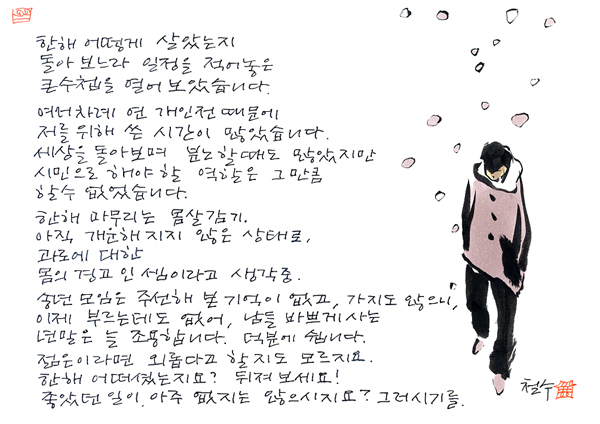 한해 어떻게 살았는지
돌아 보느라 일정을 적어놓은
큰수첩을 열어 보았습니다.
여러차례 연 개인전 때문에
저를 위해 쓴 시간이 많았습니다.
세상을 돌아보며 분노할때도 많았지만
시민으로 해야 할 역할은 그만큼
할수 없었습니다.
한해 마무리는 몸살감기.
아직 개운해 지지 않은 상태로,
과로에 대한
몸의 경고 인 셈이라고 생각중.
송년 모임은 주선해 본 기억이 없고, 가지도 않으니,
이제 부르는데도 없어, 남들 바쁘게 사는
년말은 늘 조용합니다. 덕분에 쉽니다.
젊은이라면 외롭다고 할지도 모르지요.
한해 어떠셨는지요? 뒤져 보세요!
좋았던 일이 아주 없지는 않으시지요? 그러시기를.
철수